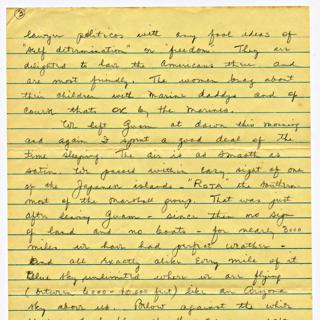 ③
lawyer politicos with any fool ideas of
"self determination" or freedom. They are
delighted to have the Americans there and
are most friendly. The women brag about
their children with Marine daddys and of
course thats OK by the Marines.
We left Guam at dawn this morning
and again I spent a good deal of the
time sleeping. The air is as smooth as
satin. We passed within easy sight of one
of the Japanese islands - "ROTA" the southern-
most of the Marshall group. That was just
after leaving Guam - since then no sign
of land and no boats - for nearly 3000
miles we have had perfect weather -
and all exactly alike every mile of it
Blue sky unlimited where we are flying
(between 8000 - 10,000 feet) like an Arizona
sky above us. Below against the white